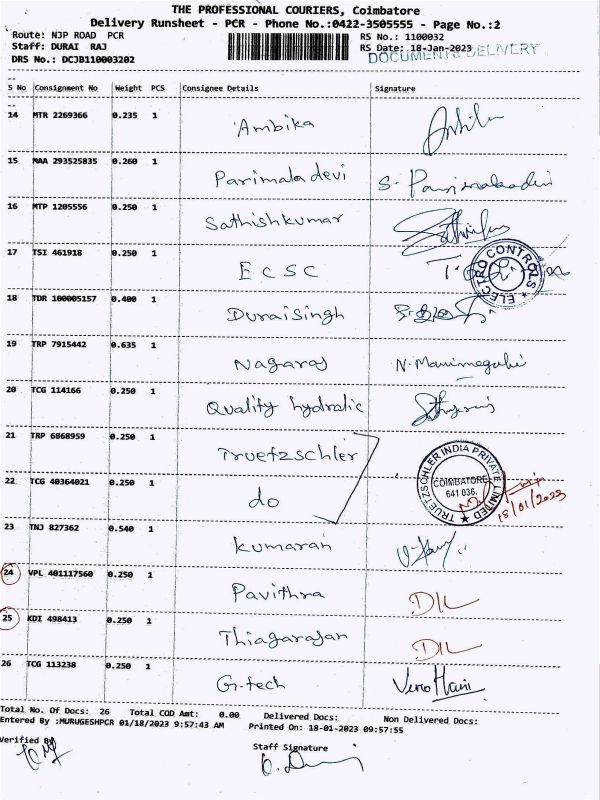 THE PROFESSIONAL COURIERS, Coimbatore
Delivery Runsheet - PCR - Phone No.:0422-3505555 - Page No.:2
Route: NJP ROAD PCR RS No.: 1100032
Staff: DURAI RAJ RS Date: 18-Jan-2023
DRS No.: DCJB110003202 DOCUMENTS DELIVERY
S No Consignment No Weight PCS Consignee Details Signature
14 MTR 2269366 0.235 1 Ambika
15 MAA 293525835 0.260 1 Parimala devi S. Parimaladevi
16 MTP 1205556 0.250 1 Sathishkumar
17 TSI 461918 0.250 1 ECSC ELECTRO CONTROLS
18 TDR 100005157 0.400 1 Duraisingh
19 TRP 7915442 0.635 1 Nagaraj N. Manimegalai
20 TCG 114166 0.250 1 Quality hydralic
21 TRP 6868959 0.250 1 Truetzschler TRUETZSCHLER INDIA PRIVATE LIMITED
COIMBATORE
641 036.
22 TCG 40364021 0.250 1 do 18/01/2023
23 TNJ 827362 0.540 1 Kumaran
24 VPL 401117560 0.250 1 Pavithra D/L
25 KDI 498413 0.250 1 Thiagarajan D/L
26 TCG 113238 0.250 1 G-tech
Total No. Of Docs: 26 Total COD Amt: 0.00 Delivered Docs: Non Delivered Docs:
Entered By :MURUGESHPCR 01/18/2023 9:57:43 AM Printed On: 18-01-2023 09:57:55
Verified By Staff Signature